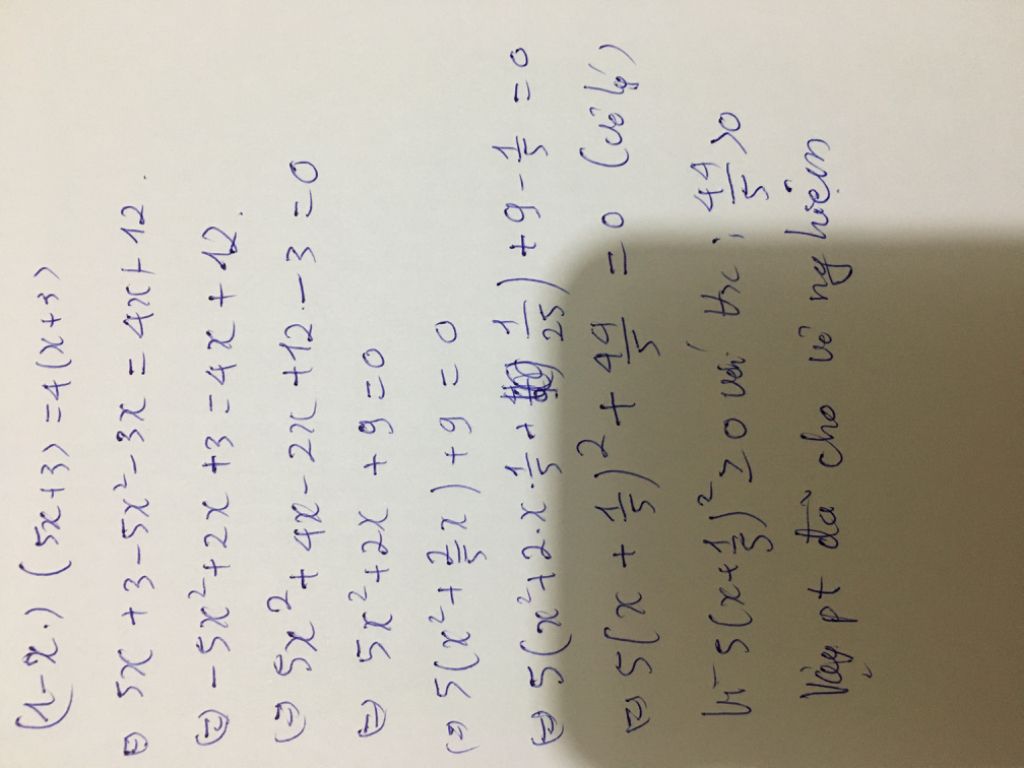 (1-x.) (5x+3) = 4(x+3)
⇔ 5x + 3 - 5x² - 3x = 4x + 12.
⇔ - 5x² + 2x + 3 = 4x + 12.
⇔ 5x² + 4x - 2x + 12 - 3 = 0
⇔ 5x² + 2x + 9 = 0
⇔ 5(x² + 2/5 x) + 9 = 0
⇔ 5(x² + 2.x.1/5 + 1/25) + 9 - 1/5 = 0
⇔ 5(x + 1/5)² + 44/5 = 0 (vô lý)
Vì 5(x+1/5)² ≥ 0 với ; 44/5 >0
Vậy pt đã cho vô nghiệm